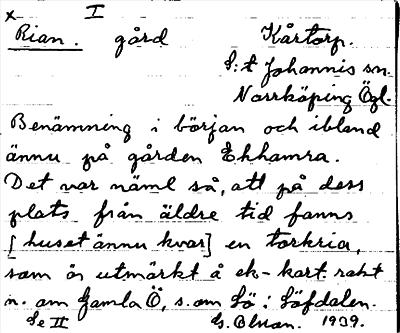 x I
Rian. gård Kårtorp.
S:t Johannis sn.
Norrköping Ögl.
Benämning i början och ibland
ännu på gården Ekhamra.
Det var näml så, att på dess
plats från äldre tid fanns
[huset ännu kvar] en torkria,
som är utmärkt å ek-kart. rakt
n. om Gamla Ö, s. om Lö i Löfdalen.
Se II 1939.